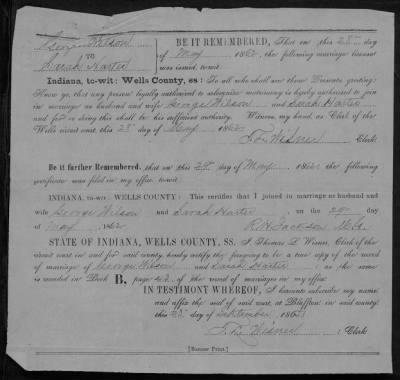 George Wilson
TO
Sarah Harter
BE IT REMEMBERED, That on this 28th day
of May 1862, the following marriage license
was issued, to-wit:
Indiana, to-wit: Wells County, ss: To all who shall see these Presents, greeting:
Know ye, that any person legally authorized to solemnize matrimony is hereby authorized to join
in marriage as husband and wife George Wilson and Sarah Harter
and for so doing this shall be his sufficient authority. Witness, my hand, as Clerk of the
Wells circuit court, this 28th day of May 1862
T. L. Wisner Clerk.
Be it further Remembered, that on this 29th day of May 1862 the following
certificate was filed in my office, to-wit:
INDIANA, to-wit: WELLS COUNTY: This certifies that I joined in marriage as husband and
wife George Wilson and Sarah Harter on the 29th day
of May 1862
R. H. Jackson
STATE OF INDIANA, WELLS COUNTY, SS. I Thomas L. Wisner, Clerk of the
circuit court in and for said county, hereby certify the foregoing to be a true copy of the record
of marriage of George Wilson and Sarah Harter as the same
is recorded in Book B, page of the record of marriages in my office.
IN TESTIMONY WHEREOF, I hereunto subscribe my name
and affix the seal of said court, at Bluffton, in said county,
this 25 day of September 1862
T. L. Wisner Clerk
[Banner Print.]